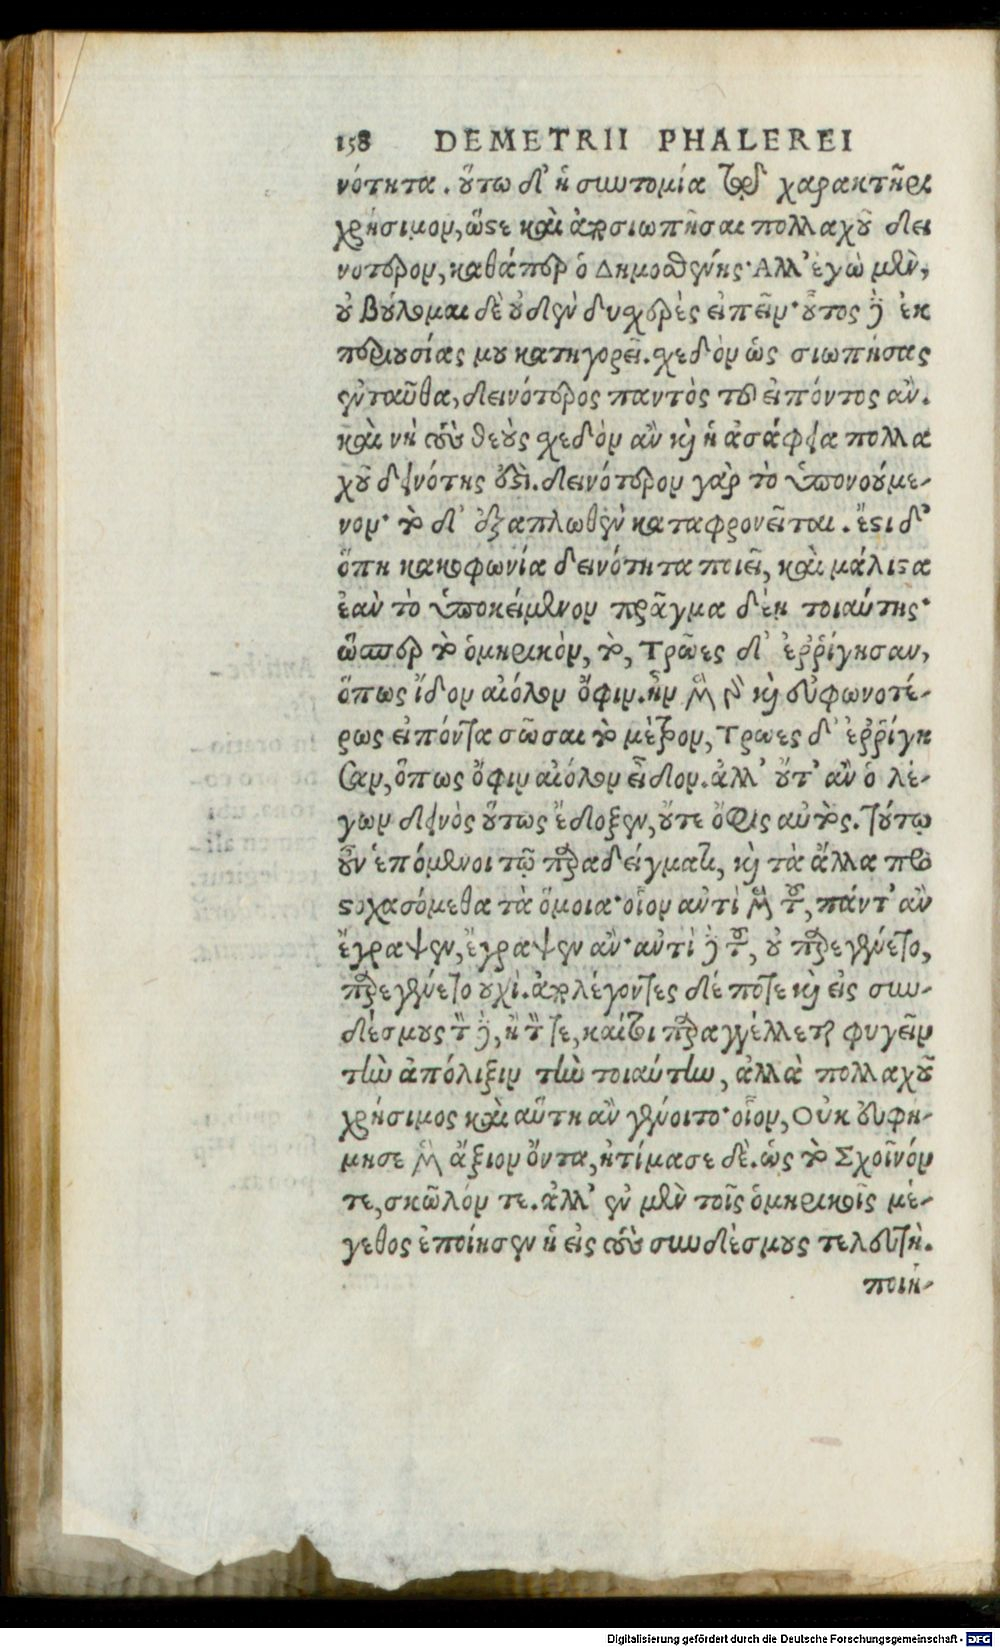 158 DEMETRII PHALEREI
νότητα. οὕτω δ' ἡ συντομία τῷδε χαρακτῆρι
χρήσιμον, ὥστε καὶ ἀποσιωπῆσαι πολλαχοῦ δει
νοτερον, καθάπερ ὁ Δημοσθένης· Αλλ' ἐγὼ μὲν,
οὐ βούλομαι δὲ οὐδὲν δυσχερὲς εἰπεῖν· οὗτος δὲ ἐκ
περιουσίας μου κατηγορεῖ. σχεδὸν ὡς σιωπήσας
ἐνταῦθα, δεινότερος παντὸς τοῦ εἰπόντος ἄν.
καὶ νὴ τοὺς θεοὺς σχεδὸν ἂν καὶ ἡ ἀσάφεια πολλα
χοῦ δεινότης ἐστί. δεινότερον γὰρ τὸ ὑπονοούμε-
νον· τὸ δ' ἐξαπλωθὲν καταφρονεῖται. ἔστι δ'
ὅπη κακοφωνία δεινότητα ποιεῖ, καὶ μάλιστα
ἐὰν τὸ ὑποκείμενον πρᾶγμα δέῃ τοιαύτης·
ὥσπερ τὸ ὁμηρικὸν, τὸ, Τρῶες δ' ἐῤῥίγησαν,
ὅπως ἴδον αἰόλον ὄφιν. ἦν μὲν γὰρ καὶ εὐφωνοτέ-
ρως εἰπόντα σῶσαι τὸ μέτρον, Τρῶες δ' ἐῤῥίγη
σαν, ὅπως ὄφιν αἰόλον εἶδον. ἀλλ' οὔτ' ἂν ὁ λέ-
γων δεινὸς οὕτως ἔδοξεν, οὔτε ὁ ὄφις αὐτός. τούτῳ
οὖν ἑπόμενοι τῷ παραδείγματι, καὶ τὰ ἄλλα προ
στοχασόμεθα τὰ ὅμοια· οἷον ἀντὶ μὲν τοῦ, πάντ' ἂν
ἔγραψεν, ἔγραψεν ἄν· ἀντὶ δὲ τοῦ, οὐ παρεγένετο,
παρεγένετο οὐχί. ἀπολέγοντες δέ ποτε καὶ εἰς συν-
δέσμους τὸν δὲ, ἢ τὸν τε, καίτοι παραγγέλλεται φυγεῖν
τὴν ἀπόληξιν τὴν τοιαύτην, ἀλλὰ πολλαχοῦ
χρήσιμος καὶ αὕτη ἂν γένοιτο· οἷον, Οὐκ εὐφή-
μησε μὲν ἄξιον ὄντα, ἠτίμασε δέ. ὡς τὸ Σχοῖνόν
τε, σκῶλόν τε. ἀλλ' ἐν μὲν τοῖς ὁμηρικοῖς μέ-
γεθος ἐποίησεν ἡ εἰς τοὺς συνδέσμους τελευτή.
ποιή-
Digitalisierung gefördert durch die Deutsche Forschungsgemeinschaft - DFG